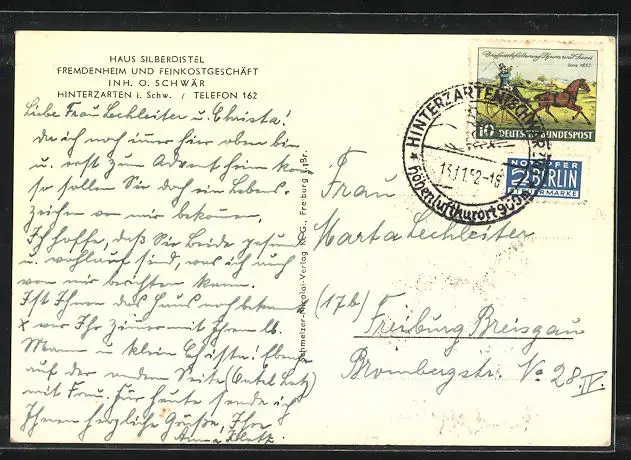 HAUS SILBERDISTEL
FREMDENHEIM UND FEINKOSTGESCHÄFT
INH. O. SCHWÄR
HINTERZARTEN i. Schw. / TELEFON 162
Liebe Frau Lechleiter u. Christa!
Da ich noch immer hier oben bin
u. erst zum Advent heim komme
so sollen Sie doch ein Lebens-
zeichen von mir bekommen.
Ich hoffe, daß Sie Beide gesund
u. wohlauf sind, was ich auch
von mir berichten kann.
Ist Ihnen das Haus noch bekannt
x wo Ihr Zimmer mit Ihrem lb.
Mann u. klein Christa! Ebenso
auf der andern Seite
mit Frau. Für heute sende ich
Ihnen herzliche Grüße, Ihre
Anna
Schmelzer-Nicolai-Verlag K.G., Freiburg i. Br.
10 DEUTSCHE BUNDESPOST
HINTERZARTEN
13.11.52-16
Höhenluftkurort
NOTOPFER
2 BERLIN
STEUERMARKE
Frau
Marta Lechleiter
(17b)
Freiburg Breisgau
Brombergstr. No 28 IV.